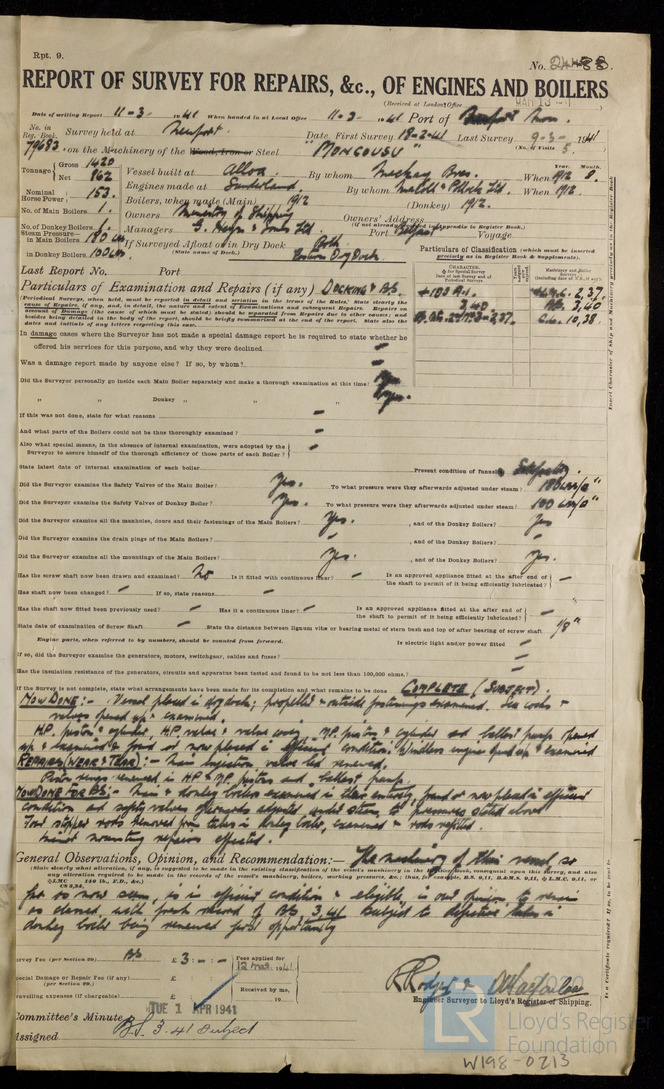 Rpt. 9.
No. 24488.
REPORT OF SURVEY FOR REPAIRS, &c., OF ENGINES AND BOILERS
(Received at London Office
Date of writing Report 11-3- 1941 When handed in at Local Office 11-3- 1941 Port of Newport Mon.
No. in Reg. Book. Survey held at Newport. Date, First Survey 18-2-41 Last Survey 9-3- 1941
79683 on the Machinery of the Wood, Iron or Steel "MONGOUSU" (No. of Visits 5.)
Tonnage Gross 1420 Net 862 Vessel built at Alloa. By whom Mackay Bros. When 1912 8.
Nominal Horse Power 153. Engines made at Sunderland. By whom Macoll & Pollock Ltd. When 1912.
No. of Main Boilers 1. Boilers, when made (Main) 1912 (Donkey) 1912.
No. of Donkey Boilers 1. Owners Ministry of Shipping Owners' Address
(if not already in Appendix to Register Book.)
Steam Pressure in Main Boilers 180 lbs Managers G. Heyn & Sons Ltd Port Belfast Voyage
in Donkey Boilers 100 lbs. If Surveyed Afloat or in Dry Dock Both
(State name of Dock.) Eastern Dry Dock
Particulars of Classification (which must be inserted precisely as in Register Book & Supplements).
Last Report No. Port
Particulars of Examination and Repairs (if any) DOCKING & B.S.
(Periodical Surveys, when held, must be reported in detail and seriatim in the terms of the Rules. State clearly the cause of Repairs, if any, and, in detail, the nature and extent of Examinations and subsequent Repairs. Repairs on account of Damage (the cause of which must be stated) should be separated from Repairs due to other causes; and besides being detailed in the body of the report, should be briefly summarised at the end of the report. State also the dates and initials of any letters respecting this case.
+100 A1. 2,37.
3,40 3,40
10,38.
In damage cases where the Surveyor has not made a special damage report he is required to state whether he offered his services for this purpose, and why they were declined -
Was a damage report made by anyone else? If so, by whom? -
Did the Surveyor personally go inside each Main Boiler separately and make a thorough examination at this time? Yes.
" " Donkey " " " " Yes.
If this was not done, state for what reasons -
And what parts of the Boilers could not be thus thoroughly examined? -
Also what special means, in the absence of internal examination, were adopted by the Surveyor to assure himself of the thorough efficiency of those parts of each Boiler? -
State latest date of internal examination of each boiler Present condition of funnels Satisfactory.
Did the Surveyor examine the Safety Valves of the Main Boiler? Yes. To what pressure were they afterwards adjusted under steam? 180 lbs/□"
Did the Surveyor examine the Safety Valves of Donkey Boiler? Yes. To what pressure were they afterwards adjusted under steam? 100 lbs/□"
Did the Surveyor examine all the manholes, doors and their fastenings of the Main Boilers? Yes. , and of the Donkey Boilers? Yes
Did the Surveyor examine the drain plugs of the Main Boilers? - , and of the Donkey Boilers? -
Did the Surveyor examine all the mountings of the Main Boilers? Yes. , and of the Donkey Boilers? Yes.
Has the screw shaft now been drawn and examined? No Is it fitted with continuous liner? - Is an approved appliance fitted at the after end of the shaft to permit of it being efficiently lubricated? -
Has shaft now been changed? - If so, state reasons -
Has the shaft now fitted been previously used? - Has it a continuous liner? - Is an approved appliance fitted at the after end of the shaft to permit of it being efficiently lubricated? -
State date of examination of Screw Shaft - State the distance between lignum vitæ or bearing metal of stern bush and top of after bearing of screw shaft 1/8"
Engine parts, when referred to by numbers, should be counted from forward. Is electric light and/or power fitted -
If so, did the Surveyor examine the generators, motors, switchgear, cables and fuses? -
Has the insulation resistance of the generators, circuits and apparatus been tested and found to be not less than 100,000 ohms? -
If the Survey is not complete, state what arrangements have been made for its completion and what remains to be done COMPLETE (SUBJECT).
NOW DONE:- Vessel placed in dry dock; propeller & outside fastenings examined. Sea cocks & valves opened up & examined.
H.P. piston & cylinder, H.P. valve & valve cover, M.P. piston & cylinder and ballast pump opened
up & examined & found or now placed in efficient condition. Windlass engine opened up & examined
REPAIRS (WEAR & TEAR):- Main injection valve lid renewed.
Piston rings renewed in H.P. & M.P. pistons and ballast pump.
NOW DONE FOR B.S:- Main & donkey boilers examined in their entirety, found or now placed in efficient
condition and safety valves afterwards adjusted under steam to pressures stated above
Four stopper rods removed from tubes in donkey boiler, examined & rods refitted.
Minor mounting repairs effected.
General Observations, Opinion, and Recommendation:- The machinery of this vessel so
(State clearly what alteration, if any, is suggested to be made in the existing classification of the vessel's machinery in the Register Book, consequent upon this Survey, and also any alteration required to be made in the records of the vessel's machinery, boilers, working pressure, &c.
far as now seen, is in efficient condition & eligible in our opinion to remain
as classed with fresh record of B.S. 3,41 subject to defective tubes in
donkey boiler being renewed first opportunity
Survey Fee (per Section 29) BS £ 3 : - : - Fees applied for 12 MAR 1941
Special Damage or Repair Fee (if any) (per Section 29.) £ : : Received by me,
Travelling expenses (if chargeable) £ : : 19
R Rodger &
Engineer Surveyor to Lloyd's Register of Shipping.
Committee's Minute TUE 1 APR 1941
Assigned B.S. 3.41 Subject
Lloyd's Register
Foundation
W198-0213